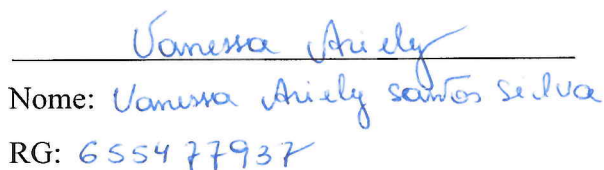 Vanessa Ariely
Nome: Vanessa Ariely Santos Silva
RG: 655477937